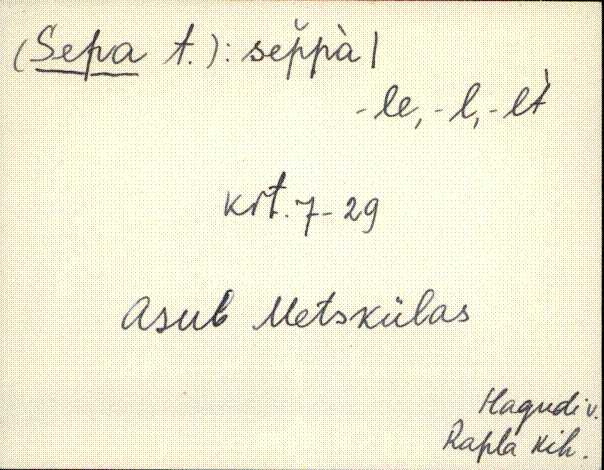 (Sepa t.): sep̆pà|
-le, -l, -lt̀
krt. 7-29
Asub Metskülas
Hagudi v.
Rapla kih.